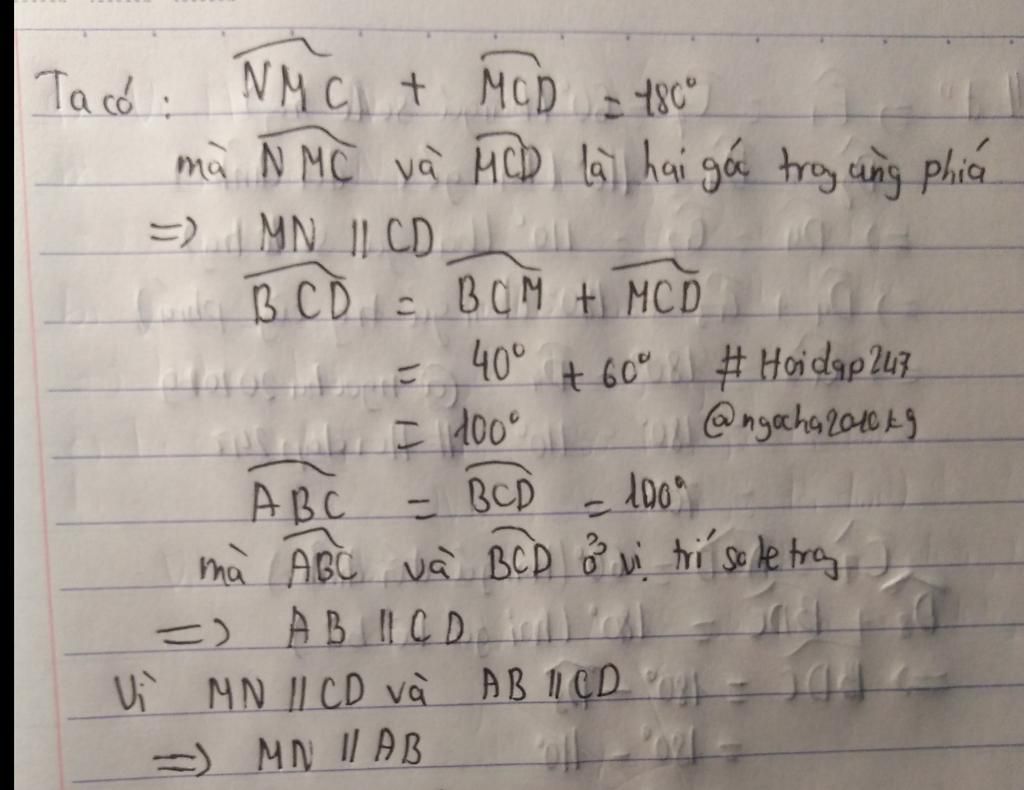 Ta có: NMC + MCD = 180°
mà NMC và MCD là hai góc trog cùng phía
=> MN // CD
BCD = BCM + MCD
= 40° + 60° # Hoidap247
= 100° @ngocha2010kg
ABC = BCD = 100°
mà ABC và BCD ở vị trí so le trog
=> AB // CD
Vì MN // CD và AB // CD
=> MN // AB